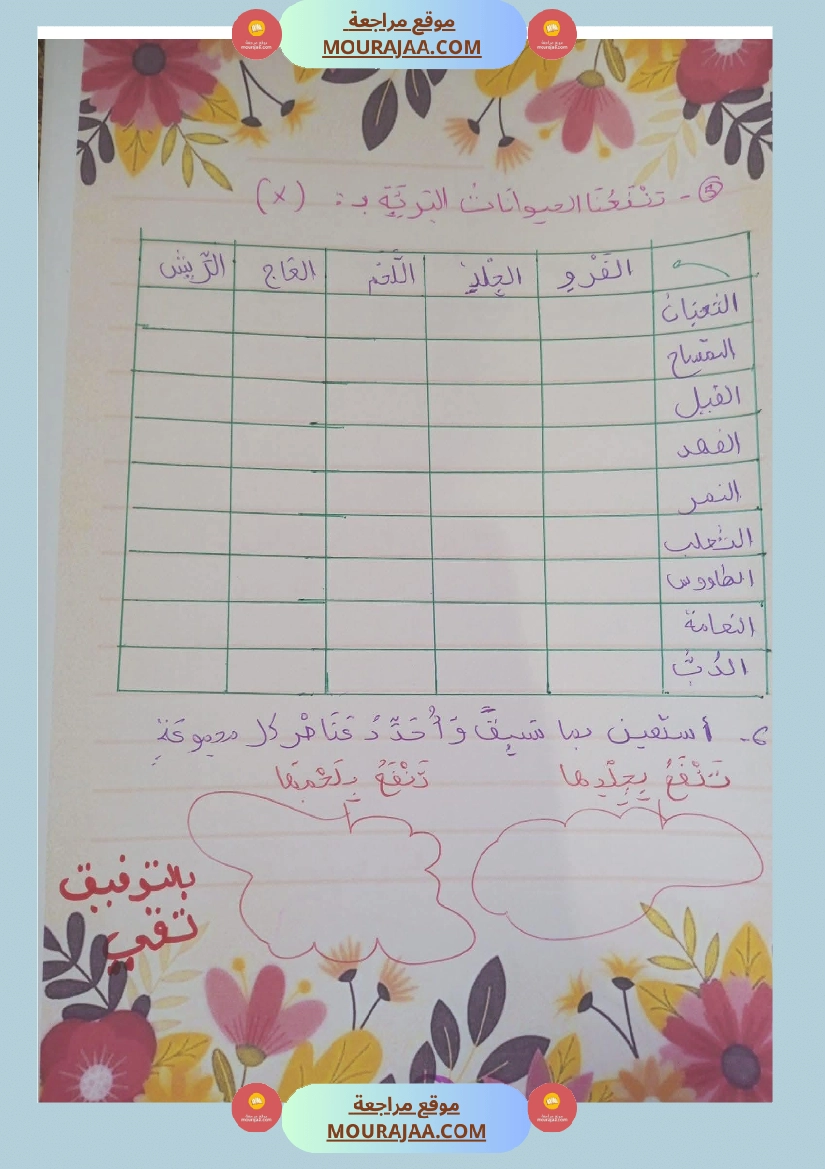 موقع مراجعة
MOURAJAA.COM
5 - تَنْفَعُنَا الحيوانَاتُ البَرِّيَّةِ بـ : (x)
الفَرْوِ الجِلْدِ اللَّحْم العَاج الرِّيش
الثعبان
التمساح
الفيل
الفهد
النمر
الثعلب
الطاووس
النعامة
الدُبّ
6- أستعين بما سَبِقً وَأُحَدِّدُ عَنَاصْر كل مجموعَةٍ
تَنْفَعُ بِجِلْدِها تَنْفَعُ بِلَحْمِهَا
بالتوفيق
تقي
موقع مراجعة
MOURAJAA.COM